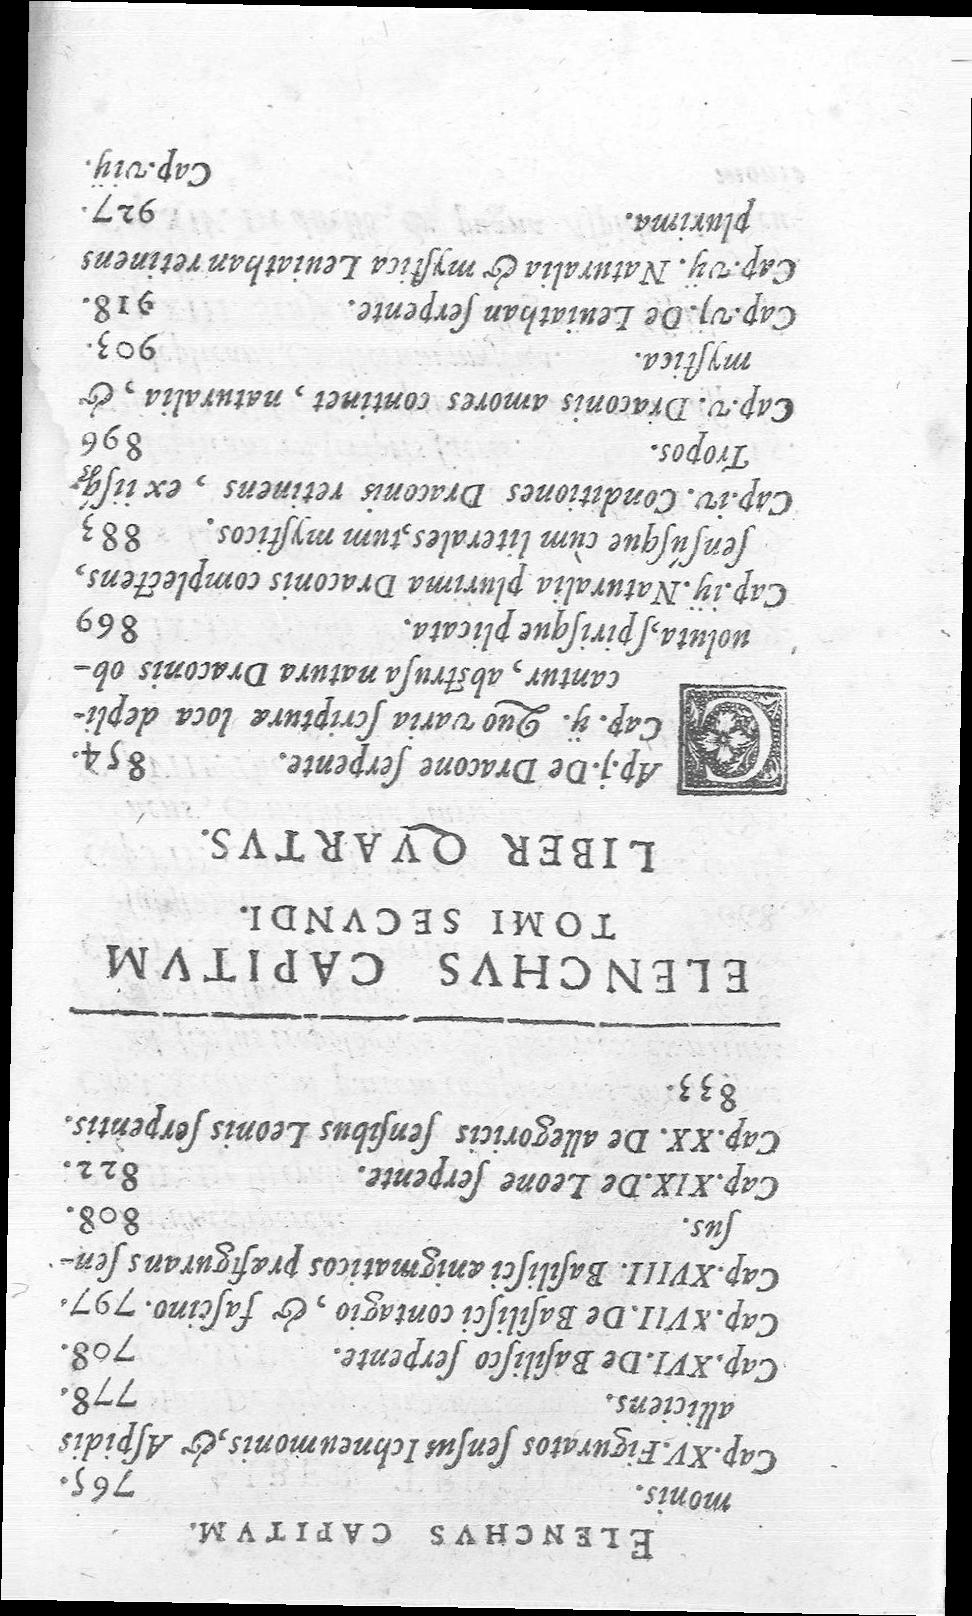 ELENCHVS CAPITVM.
monis. 765.
Cap.XV.Figuratos ſenſus Ichneumonis,& Aſpidis
alliciens. 778.
Cap.XVI.De Baſiliſco ſerpente. 708.
Cap.XVII.De Baſiliſci contagio, & faſcino. 797.
Cap.XVIII. Baſiliſci ænigmaticos præfigurans ſen-
ſus. 808.
Cap.XIX.De Leone ſerpente. 822.
Cap.XX. De allegoricis ſenſibus Leonis ſerpentis.
833.
ELENCHVS CAPITVM
TOMI SECVNDI.
LIBER QVARTVS.
CAp.j.De Dracone ſerpente. 854.
Cap. ij. Quo varia ſcripturæ loca depli-
cantur, abſtruſa natura Draconis ob-
uoluta,ſpiriſque plicata. 869
Cap.iij.Naturalia plurima Draconis complectens,
ſenſúſque cùm literales,tum myſticos. 883
Cap.iv. Conditiones Draconis retinens, ex iiſq;
Tropos. 896
Cap.v. Draconis amores continet, naturalia, &
myſtica. 903.
Cap.vj.De Leuiathan ſerpente. 918.
Cap.vij. Naturalia & myſtica Leuiathan retinens
plurima. 927.
Cap.viij.